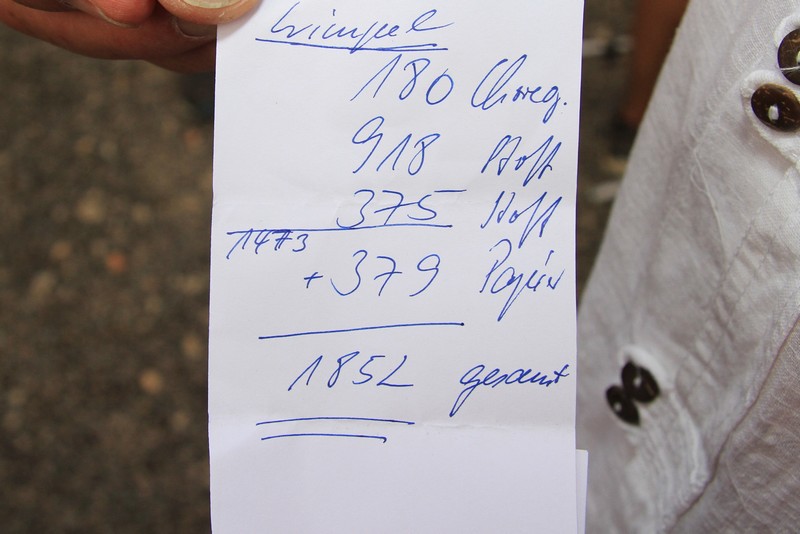 Wimpel
180 Chiemg.
918 Stoff
375 Stoff
1473
+379 Papier
1852 gesamt